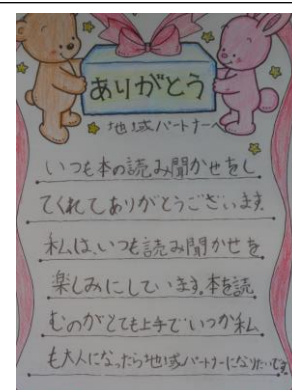 ありがとう
地域パートナーへ
いつも本の読み聞かせをし
てくれてありがとうございます。
私は、いつも読み聞かせを
楽しみにしています。本を読
むのがとても上手でいつか私
も大人になったら地域パートナーになりたいです。